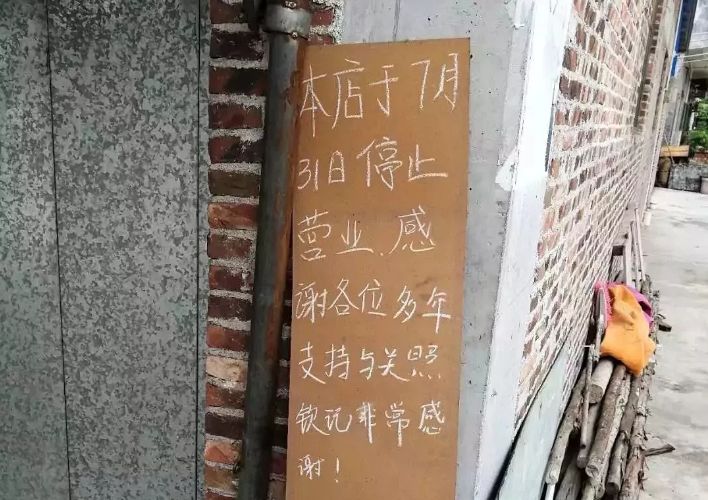 本店于7月
31日停止
营业.感
谢各位多年
支持与关照
钦记非常感
谢!